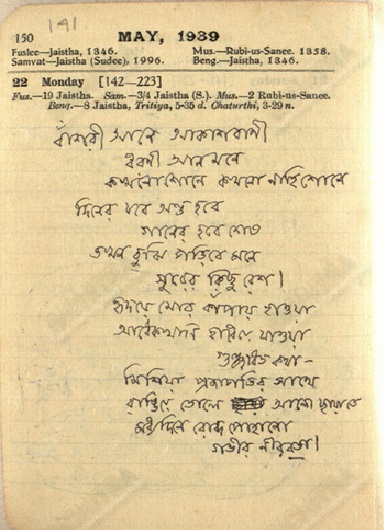 141
150 MAY, 1939
Fuslee—Jaistha, 1346. Mus.—Rubi-us-Sanee. 1358.
Samvat—Jaistha (Sudee), 1996. Beng.—Jaistha, 1346.
22 Monday [142—223]
Fus.—19 Jaistha. Sam.—3/4 Jaistha (S.). Mus.—2 Rubi-us-Sanee.
Beng.—8 Jaistha, Tritiya, 5-35 d. Chaturthi, 3-29 n.
বাঁশরী আনে আকাশবাণী
ধরণী আনমনে
কখনো শোনে কখনো নাহি শোনে
দিনের যবে অন্ত হবে
গানের হবে শেষ
তখন বুঝি পড়িবে মনে
সুরের কিছু রেশ।
হৃদয়ে মোর কাঁপায় হাওয়া
আধেকখানি হারিয়ে যাওয়া
গুঞ্জরিত কথা—
মিশিয়া প্রজাপতির সাথে
রাঙিয়ে তোলে আলো ছায়াতে
রোদ পোহানো
গভীর নীরবতা।